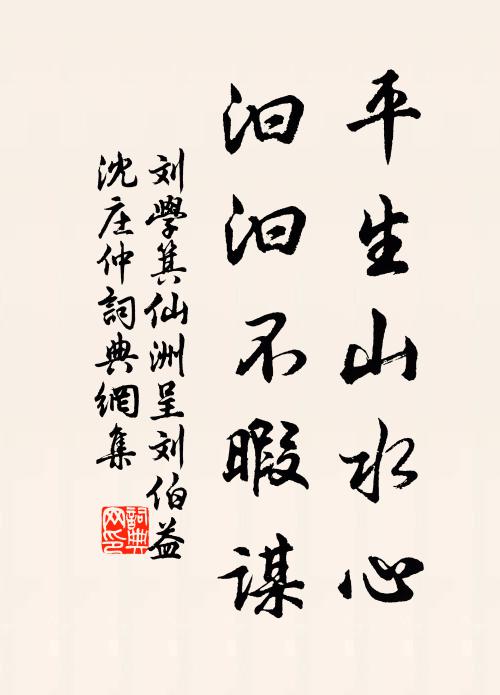 平生山水心
汩汩不暇谋
刘學箕仙洲呈刘伯益
沈庄仲詞典網集
詞典
网印